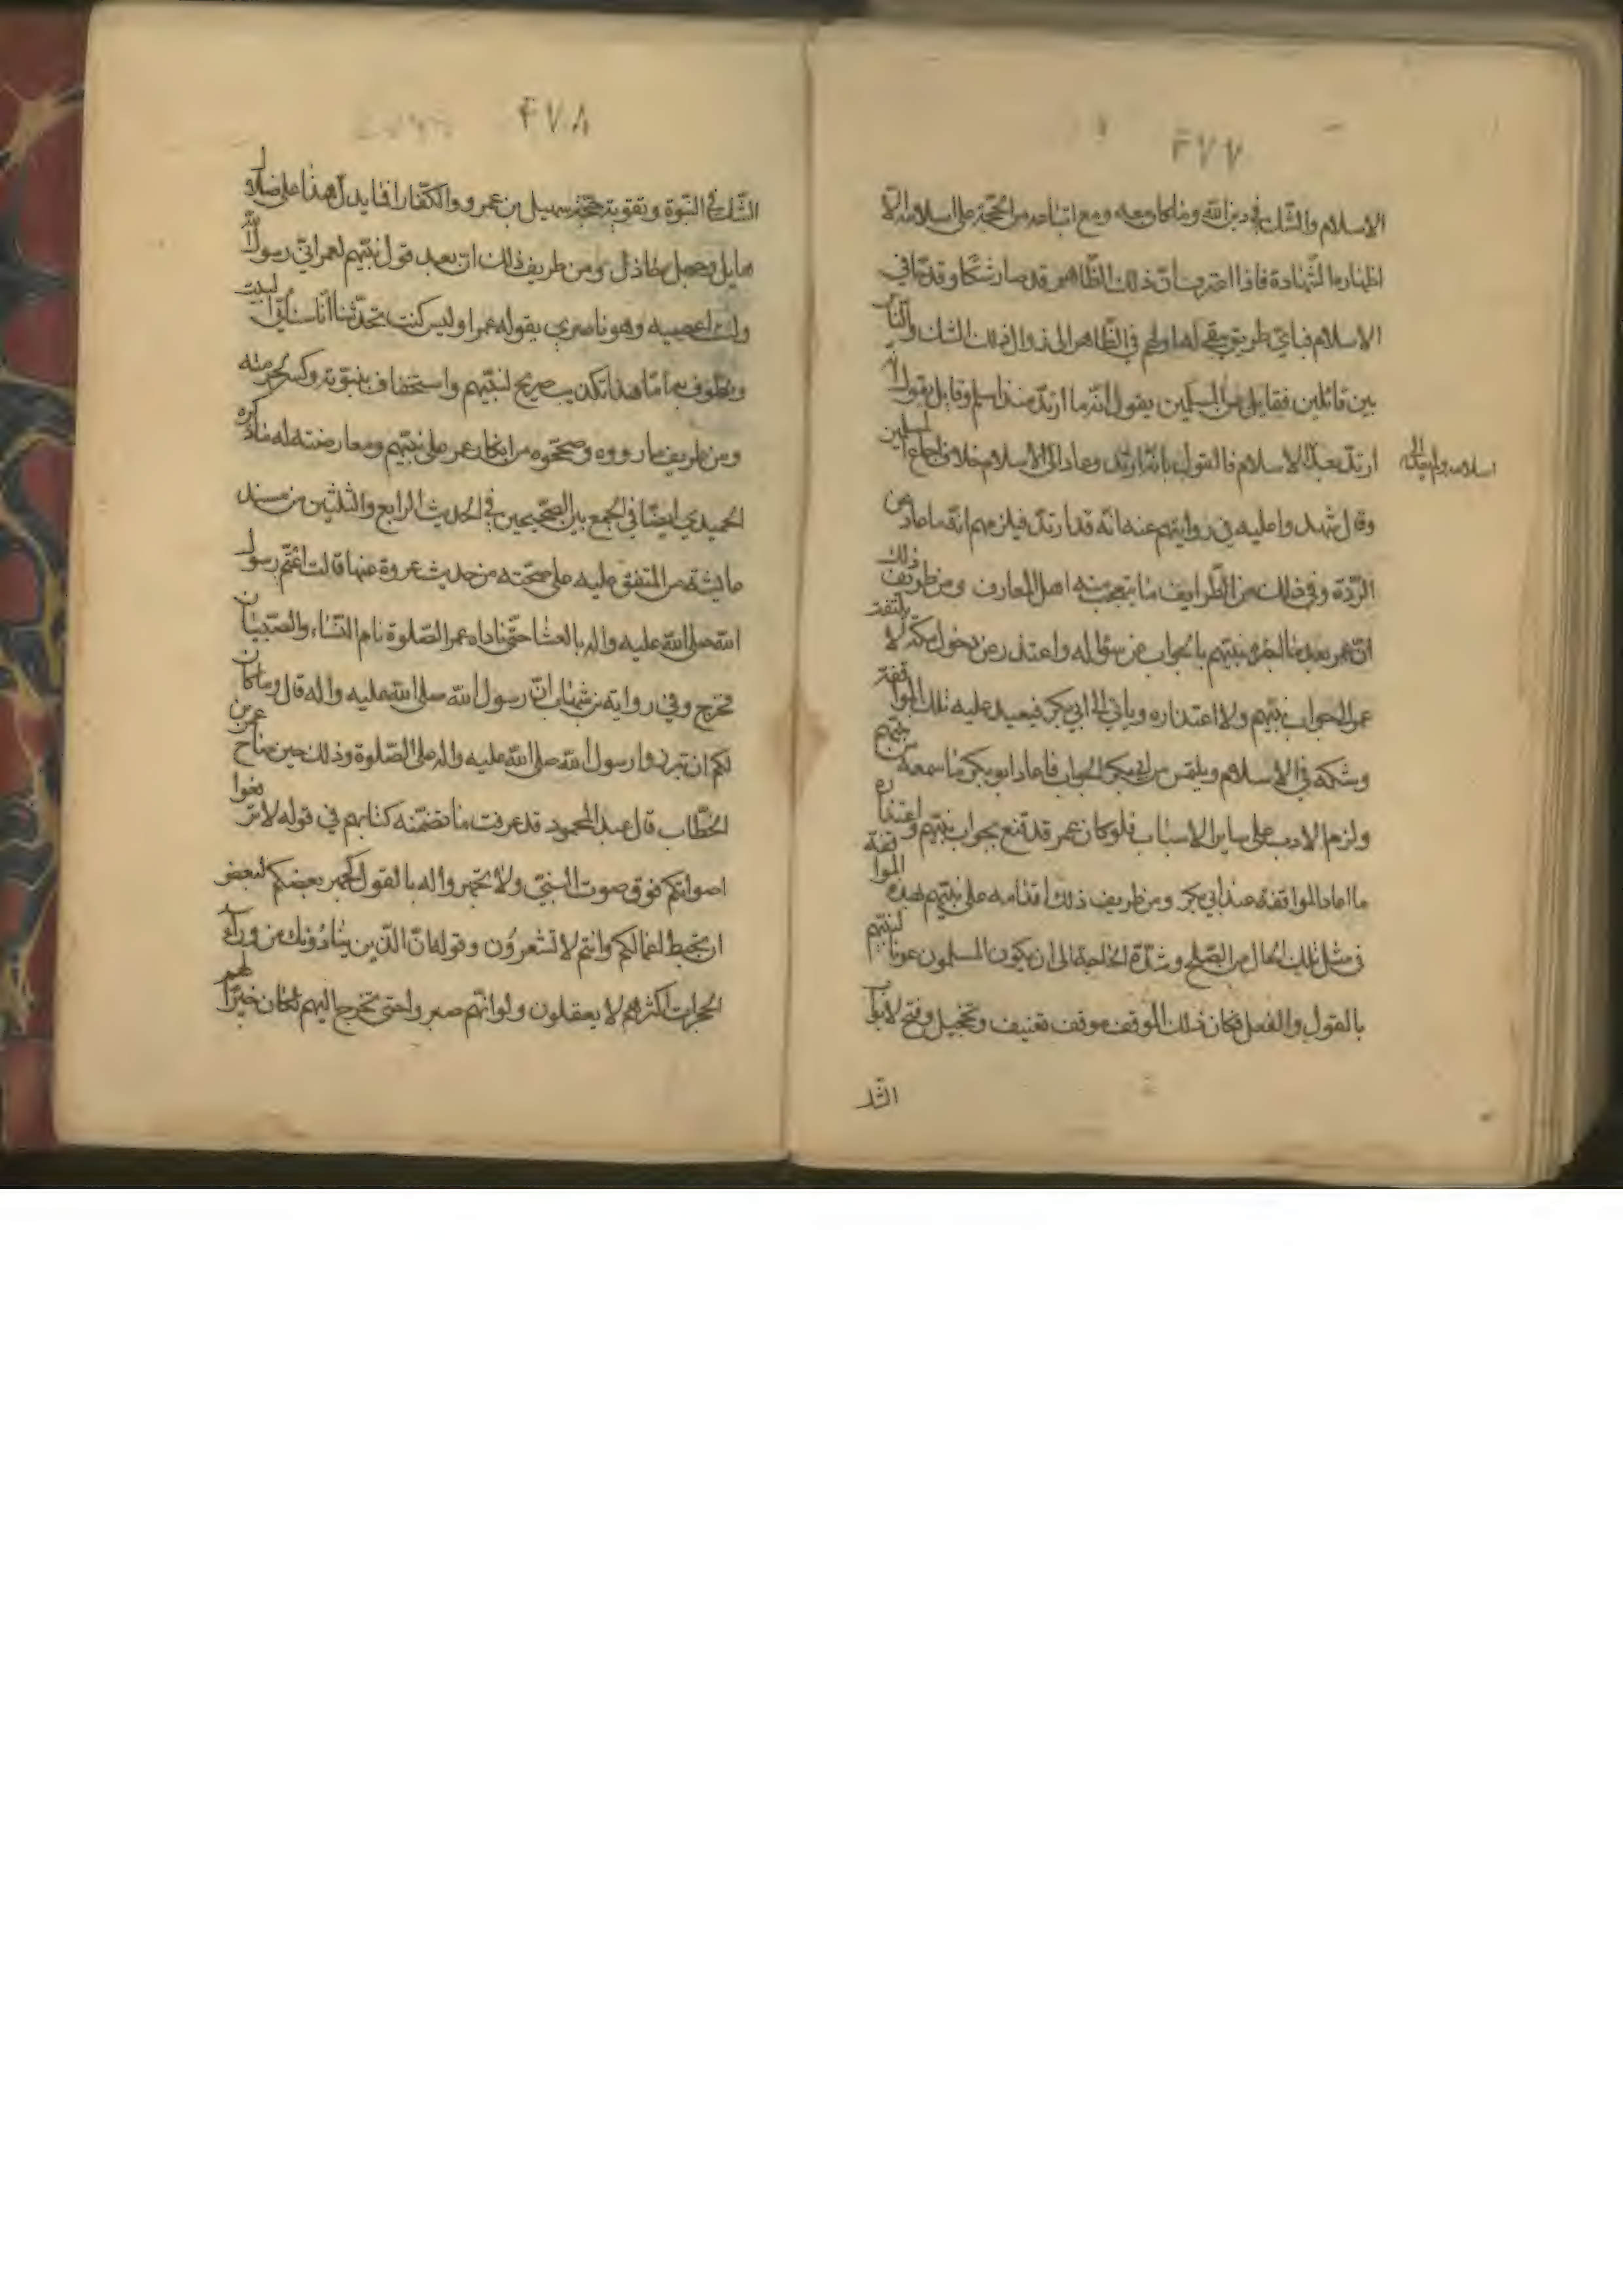 ۴۷۷
الاسلام والشك في دين الله وما كان معه ومع اتباعه من الحجة على اسلامه الا
اظهاره الشهادة فاذا اعترف بان ذلك الظاهر قد صار شكا وقدحا في
الاسلام فباي طريق بقي لها ولهم في الظاهر الى زوال ذلك الشك والناس
بين قائلين فقايل من المسلمين يقول انه ما ارتد منذ اسلم وقايل يقول انه
ارتد بعد الاسلام فالقول بانه ارتد وعاد الى الاسلام خلاف اجماع المسلمين
اسلامه ولم يعد الى
وقال شهدوا عليه في روايتهم عنه انه قد ارتد فيلزمهم انه ما عاد عن
الردة وفي ذلك من الطرايف ما يتعجب منه اهل المعارف ومن طريف ذلك
ان عمر بعد هذا نبيهم بالجواب عن سؤاله واعتذر عن دخول مكة لا يلتفت
عمر الى جواب نبيهم ولا اعتذاره وياتي الى ابي بكر فيعيد عليه تلك المواقفة
وشكه في الاسلام ويلتمس من ابي بكر الجواب فاعاد ابو بكر ما سمعه من نبيهم
ولزم الادب على ساير الاسباب فلو كان عمر قد قنع بجواب نبيهم واعتذاره
ما اعاد المواقفة عند ابي بكر ومن طريف ذلك اقدامه على نبيهم بهذه المواقفة
في مثل تلك الحال من الصلح وشدة الحاجة الى ان يكون المسلمون عونا لنبيهم
بالقول والفعل فكان ذلك الموقف موقف تعنيف وتخجيل وفتح لابواب
الشك
۴۷۸
الشك في النبوة وتقوية حجة سهيل بن عمرو والكفار افما يدل هذا على ضلال
هايل وجهل خاذل ومن طريف ذلك ان بعد قول نبيهم لعمر اني رسول الله
ولست اعصيه وهو ناصري يقول له عمر اوليس كنت تحدثنا انا سناتي البيت
ونطوف به اما هذا تكذيب صريح لنبيهم واستخفاف بنبوته وكسر لحرمته
ومن طريف ما رووه وصححوه من انكار عمر على نبيهم ومعارضته له ما ذكره
الحميدي ايضا في الجمع بين الصحيحين في الحديث الرابع والثلثين من مسند
عايشة من المتفق عليه على صحته من حديث عروة عنها قالت اعتم رسول
الله صلى الله عليه واله بالعشا حتى ناداه عمر الصلوة نام النساء والصبيان
فخرج وفي رواية بن شهاب ان رسول الله صلى الله عليه واله قال وما كان
لكم ان تبرزوا رسول الله صلى الله عليه واله على الصلوة وذلك حين صاح عمر بن
الخطاب قال عبد المحمود قد عرفت ما تضمنه كتابهم في قوله لا ترفعوا
اصواتكم فوق صوت النبي ولا تجهروا له بالقول كجهر بعضكم لبعض
ان تحبط اعمالكم وانتم لا تشعرون وقوله ان الذين ينادونك من وراء
الحجرات اكثرهم لا يعقلون ولو انهم صبروا حتى تخرج اليهم لكان خيرا لهم